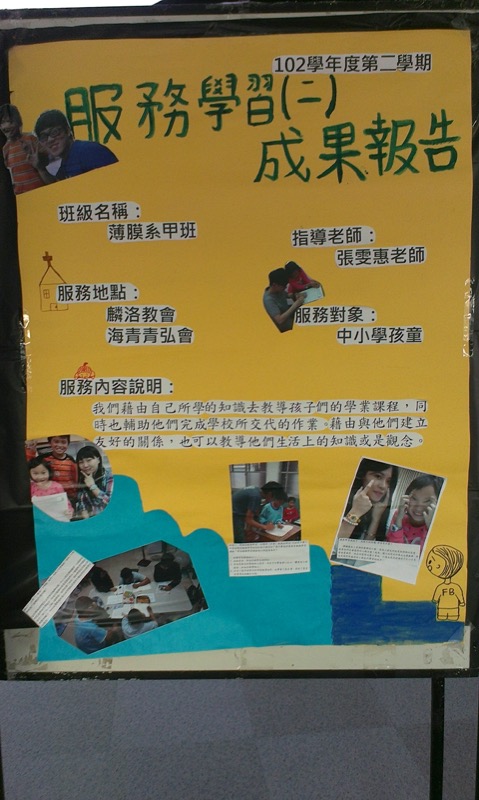 102學年度第二學期
服務學習(二)
成果報告
班級名稱：
薄膜系甲班
指導老師：
張雯惠老師
服務地點：
麟洛教會
海青青弘會
服務對象：
中小學孩童
服務內容說明：
我們藉由自己所學的知識去教導孩子們的學業課程，同
時也輔助他們完成學校所交代的作業。藉由與他們建立
友好的關係，也可以教導他們生活上的知識或是觀念。
FB